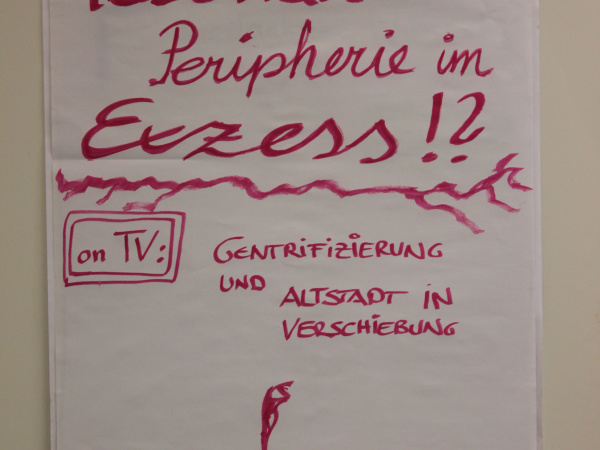 Peripherie im
Exzess!?
on TV:
GENTRIFIZIERUNG
UND
ALTSTADT IN
VERSCHIEBUNG